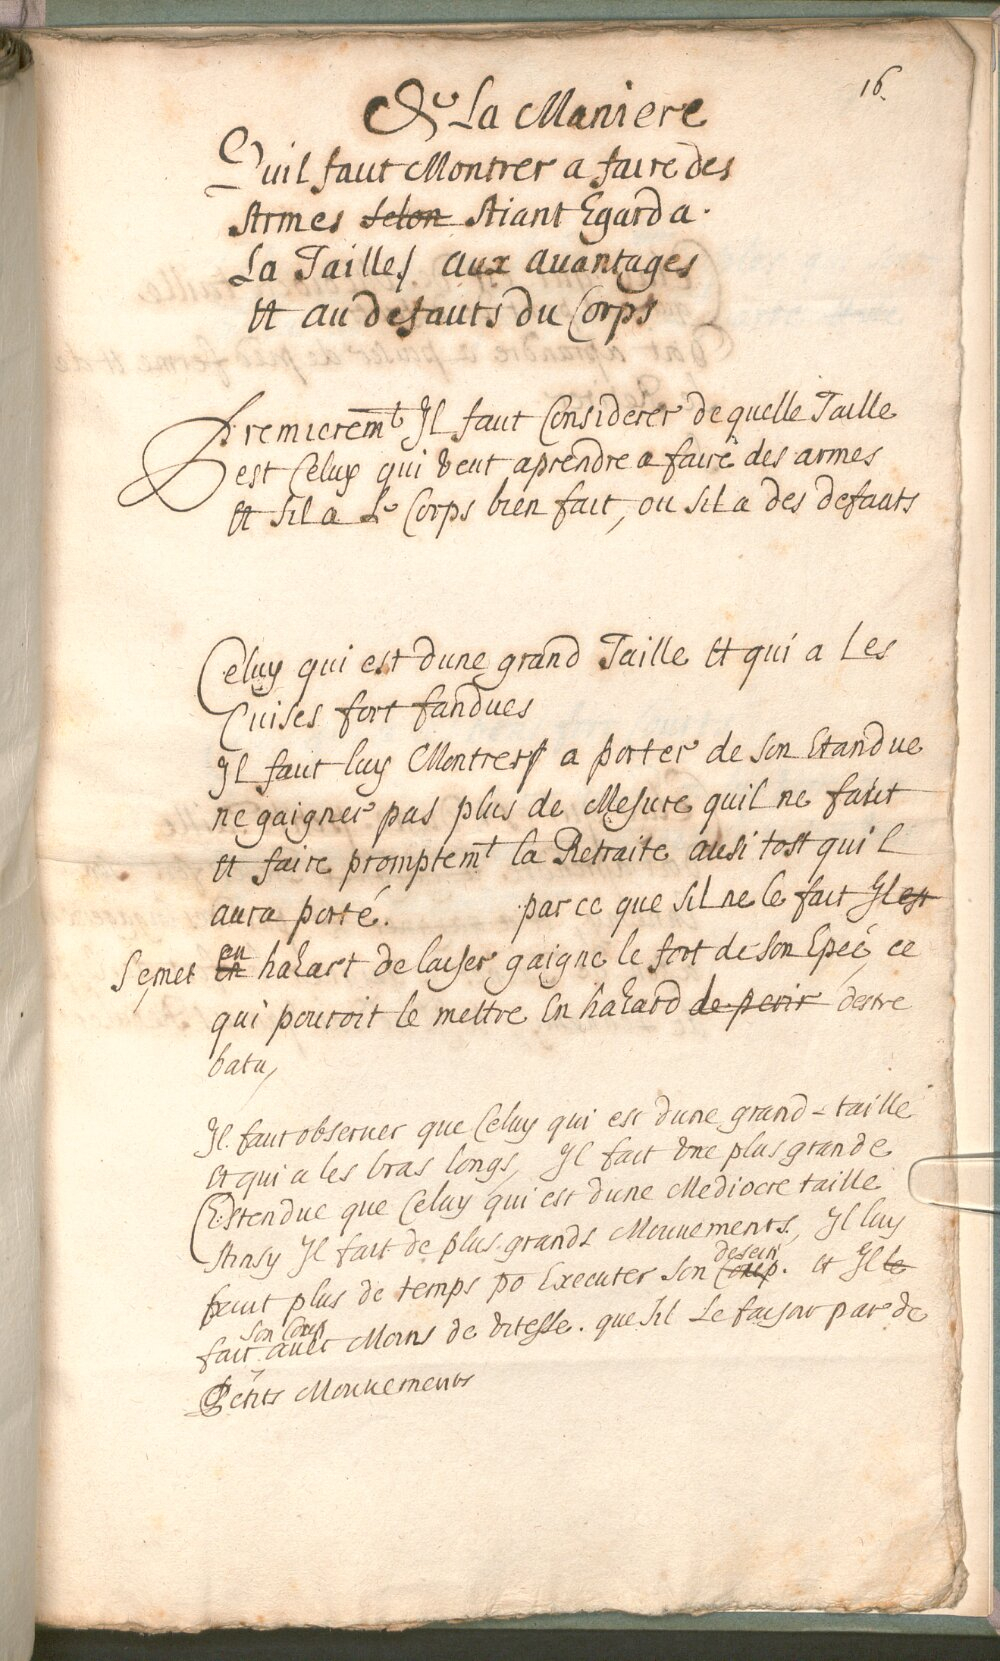 16.
De La Maniere
Quil faut Montrer a faire des
Armes selon Aiant Egard a.
La Taille, aux avantages
Et au defauts du Corps
Premierem.t Il faut Considerer de quelle Taille
est Celuy qui veut aprendre a faire des armes
Et sil a Le Corps bien fait, ou sil a des defauts
Celuy qui est dune grand Taille Et qui a Les
Cuises fort fandues
Il faut luy Montrer a porter de son Etandue
ne gaigner pas plus de Mesure quil ne faut
Et faire promptem.t la Retraite ausi tost quil
aura porté. par ce que sil ne le fait Il est
Se met en en hazart de laiser gaigne le fort de son Epeé, ce
qui pouroit le mettre En hazard de perir destre
batu,
Il faut observer que Celuy qui est dune grand-taille
Et qui a les bras longs, Il fait une plus grande
Estendue que Celuy qui est dune Mediocre taille
Ainsy Il fait de plus grands Mouuements, Il luy
faut plus de temps po Executer son Coup. desein Et Il le
fait son Coup avec Moins de vitesse. que sil Le faisoit par de
Petits Mouuements